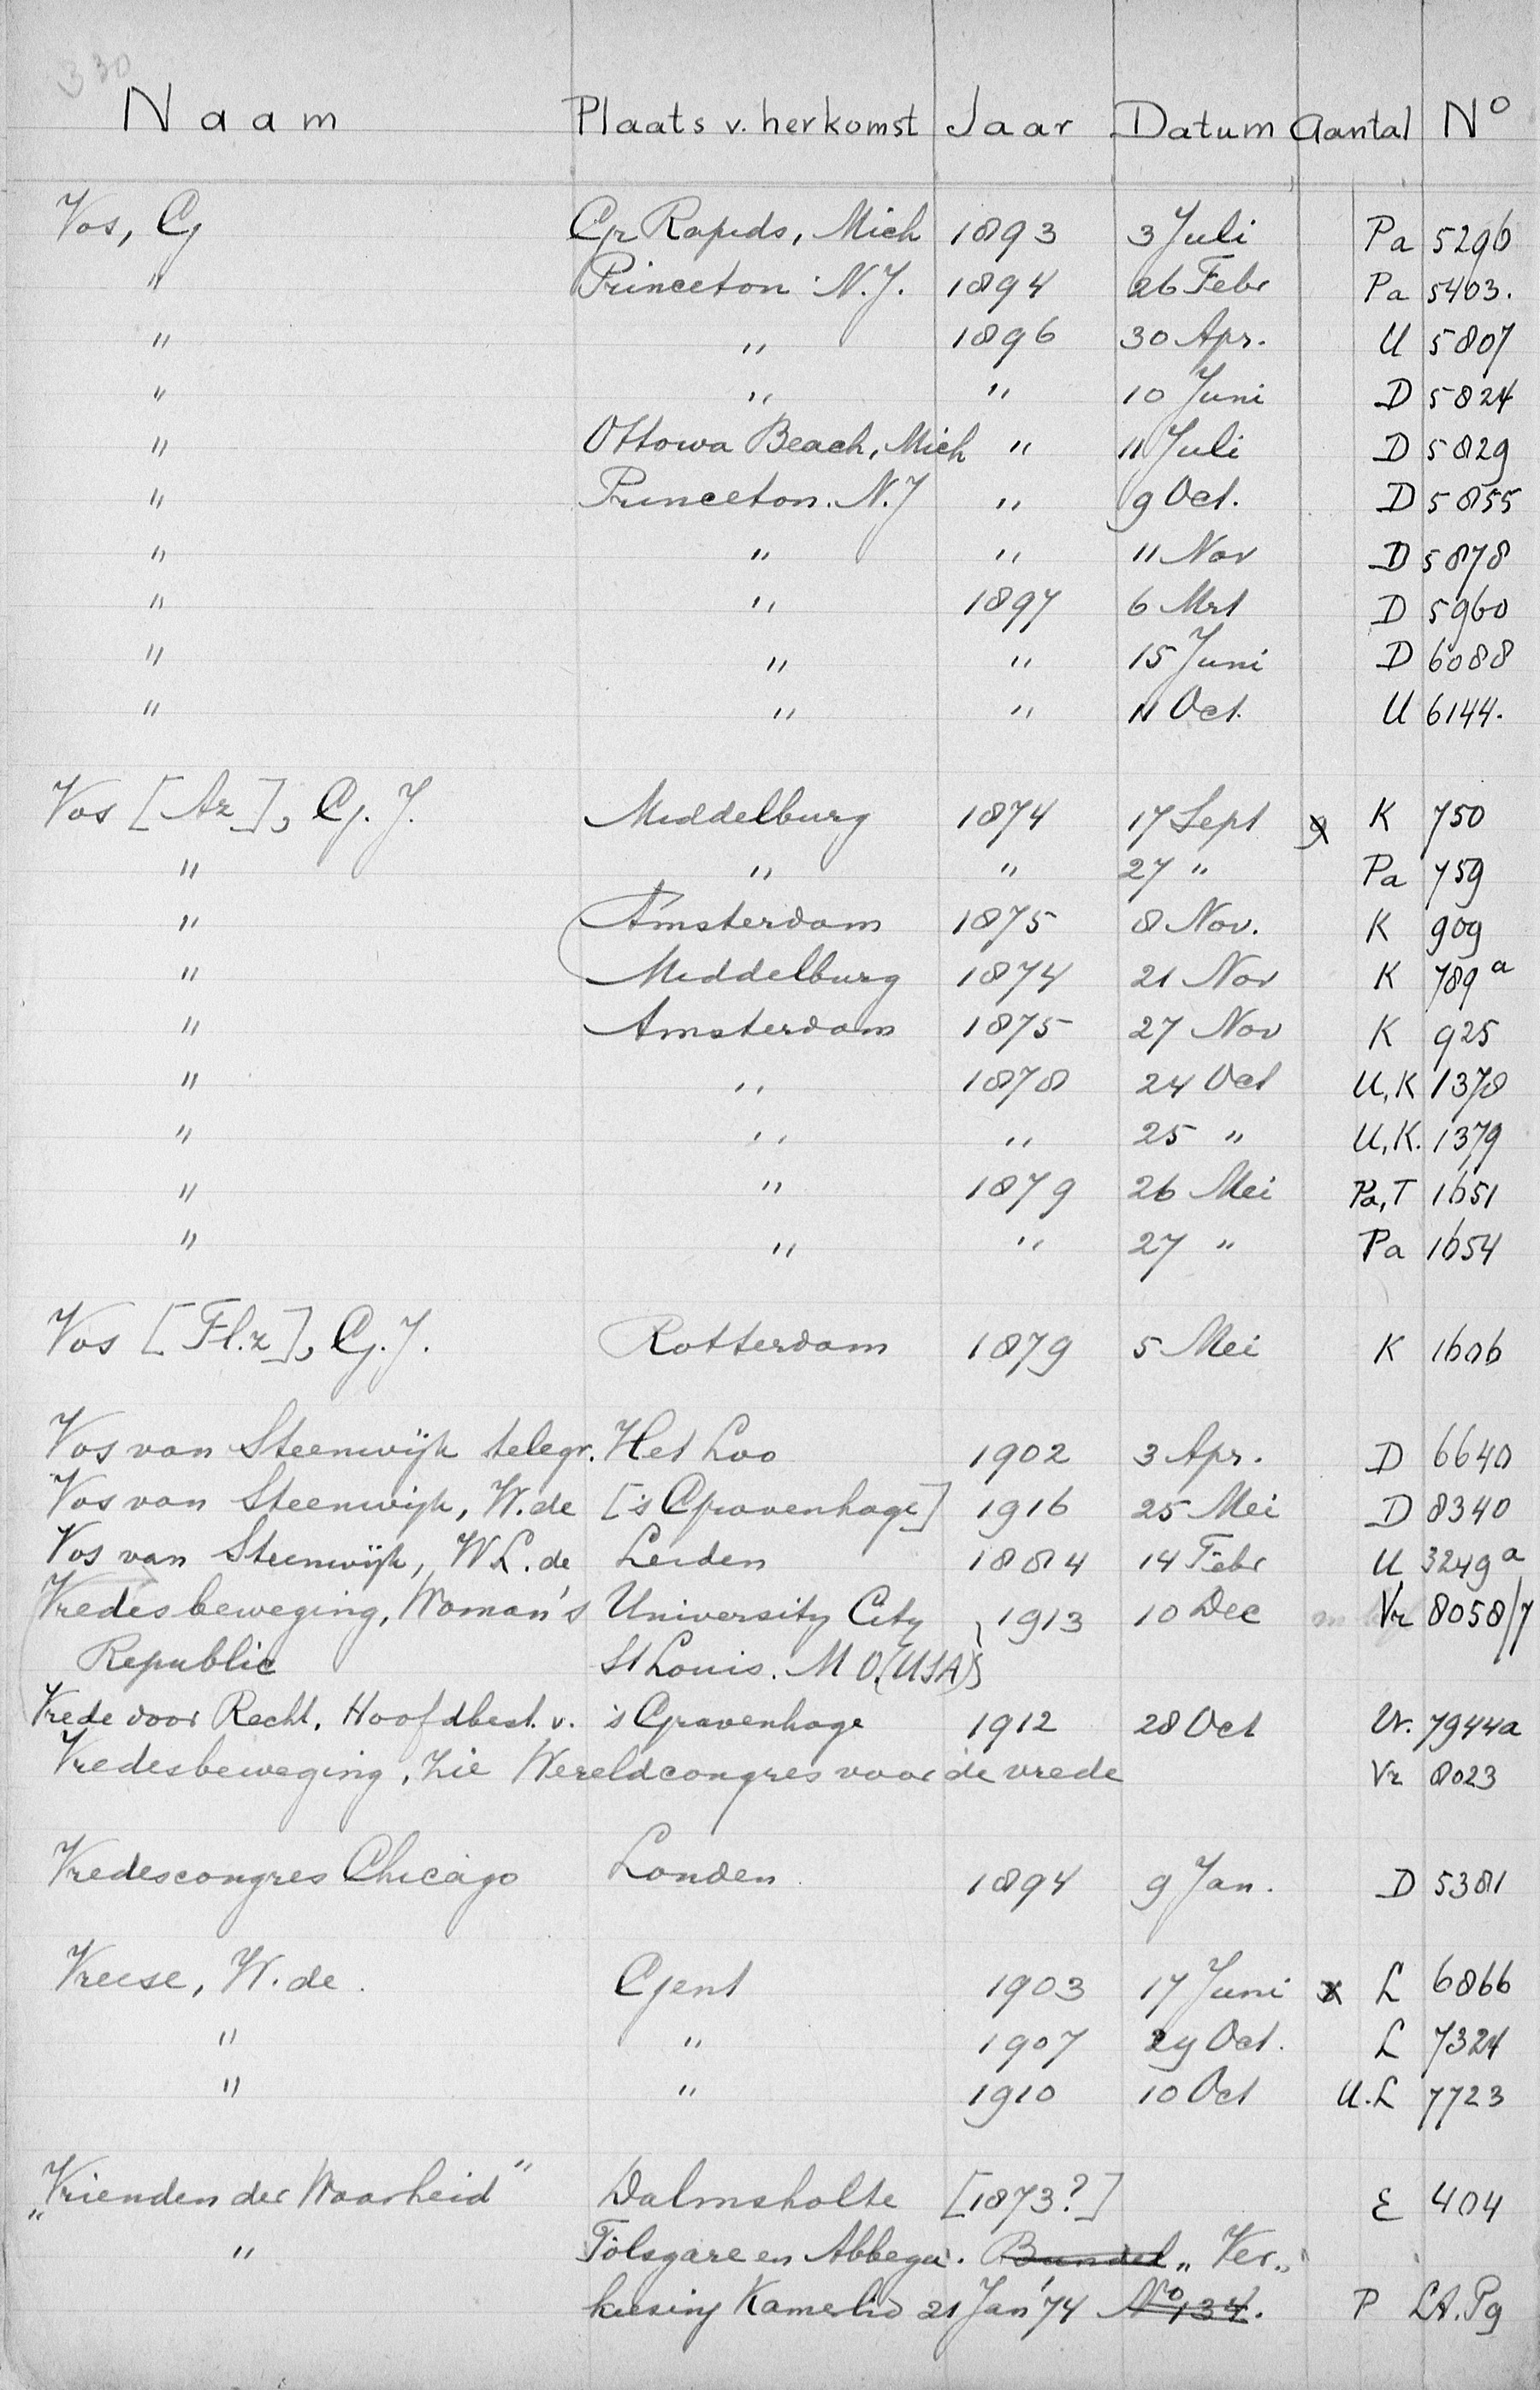 330
Naam Plaats v. herkomst Jaar Datum Aantal No
Vos, G Gr Rapids, Mich 1893 3 Juli Pa 5296
" Princeton N.J. 1894 26 Febr Pa 5403.
" " 1896 30 Apr. U 5807
" " " 10 Juni D 5824
" Ottowa Beach, Mich " 11 Juli D 5829
" Princeton. N.J " 9 Oct. D 5855
" " " 11 Nov D 5878
" " 1897 6 Mrt D 5960
" " " 15 Juni D 6088
" " " 11 Oct. U 6144.
Vos [Az], G. J. Middelburg 1874 17 Sept x K 750
" " " 27 " Pa 759
" Amsterdam 1875 8 Nov. K 909
" Middelburg 1874 21 Nov K 789a
" Amsterdam 1875 27 Nov K 925
" " 1878 24 Oct U,K 1378
" " " 25 " U,K. 1379
" " 1879 26 Mei Pa,T 1651
" " " 27 " Pa 1654
Vos [Fl.z], G. J. Rotterdam 1879 5 Mei K 1606
Vos van Steenwijk telegr. Het Loo 1902 3 Apr. D 6640
Vos van Steenwijk, W. de ['s Gravenhage] 1916 25 Mei D 8340
Vos van Steenwijk, W L. de Leiden 1884 14 Febr U 3249a
Vredesbeweging, Woman's University City 1913 10 Dec Vr 8058/7
Republic St Louis. M O. (USA)
Vrede door Recht, Hoofdbest. v. 's Gravenhage 1912 28 Oct Vr. 7944a
Vredesbeweging, zie Wereldcongres voor de vrede Vr 8023
Vredescongres Chicago Londen 1894 9 Jan. D 5381
Vreese, W. de Gent 1903 17 Juni x L 6866
" " 1907 29 Oct. L 7324
" " 1910 10 Oct U.L 7723
„Vrienden der Waarheid" Dalmsholte [1873?] E 404
" Tolsgare en Abbega. Bundel „ Ver„
kiesing Kamerlid 21 Jan '74 No 134. P LA. Pg